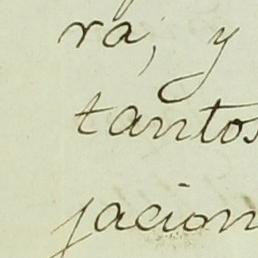 ra, y
tantos
jacion